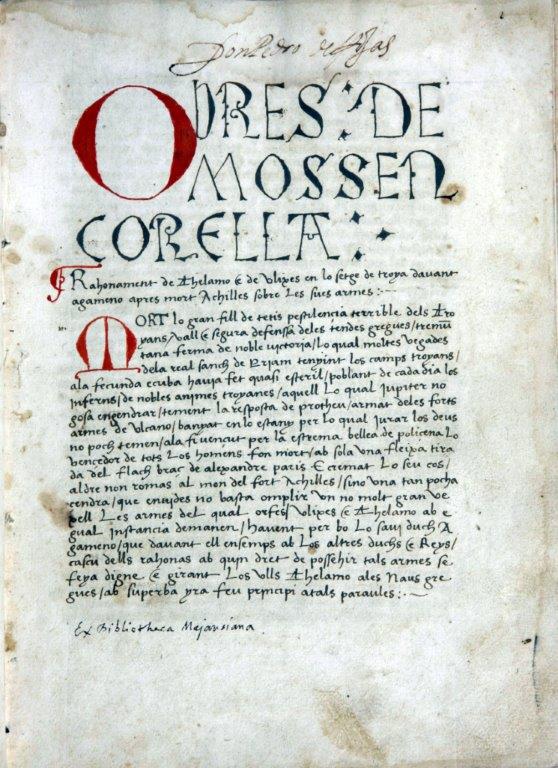 Don Pedro de
OBRES : DE
MOSSEN
CORELLA :
Rahonament de Thelamo e de Vlixes en lo setge de troya davant
agameno apres mort Achilles sobre Les sues armes :
MORT lo gran fill de tetis pestilencia terrible dels Tro
yans / vall e segura defenssa deles tendes gregues / tremu
tana ferma de noble victoria / Lo qual moltes vegades
dela real sanch de Priam tenyint los camps troyans /
ala fecunda ecuba hauia fet quasi esteril / poblant de cada dia los
inferns / de nobles animes troyanes / aquell Lo qual Jupiter no
gosa engendrar / tement la resposta de protheu / armat deles forts
armes de Vlcano / banyat en lo estany per lo qual Jurar los deus
no poch temen / ala fi vençut per la estrema bellea de policena Lo
vencedor de tots Los homens fon mort / ab sola vna fleixa tira
da del flach braç de alexandre paris E cremat Lo seu cos /
aldre non romas al mon del fort Achilles / sino vna tan pocha
cendra / que no basta omplir Vn no molt gran ve
xell Les armes del qual Vlixes e Thelamo ab e
gual Instancia demanen / havent per bo Lo savi duch A
gameno / que davant ell ensemps ab Los altres duchs e Reys /
cascu dells rahonas ab quin dret de possehir tals armes se
feya digne e girant Los Vlls Thelamo ales Naus gre
gues / ab superba yra feu principi atals paraules :
Ex Bibliotheca Majansiana